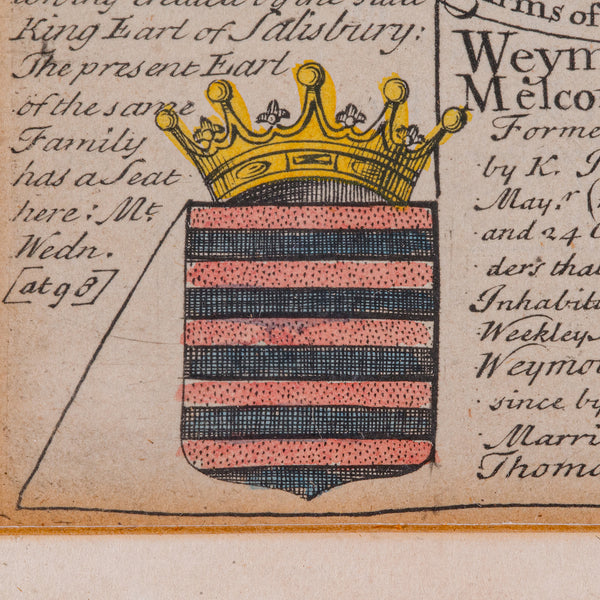 King Earl of Salisbury:
The present Earl
of the same
Family
has a Seat
here: Mt.
Wedn.
[at 98]
Arms of
Weym
Melco
Forme
by K.
May.r
and 24
ders tha
Inhabit
Weekley
Weymou
since by
Marri
Thoma